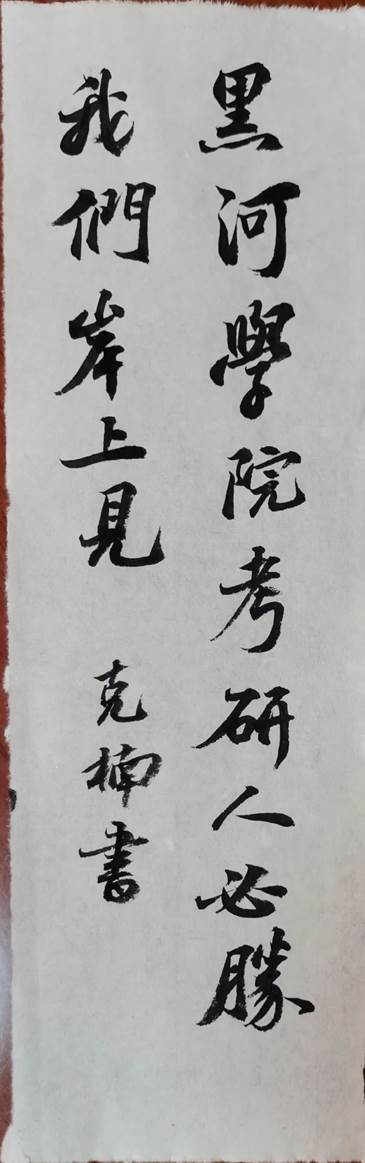 黑河學院考研人必勝
我們岸上見 克楠書